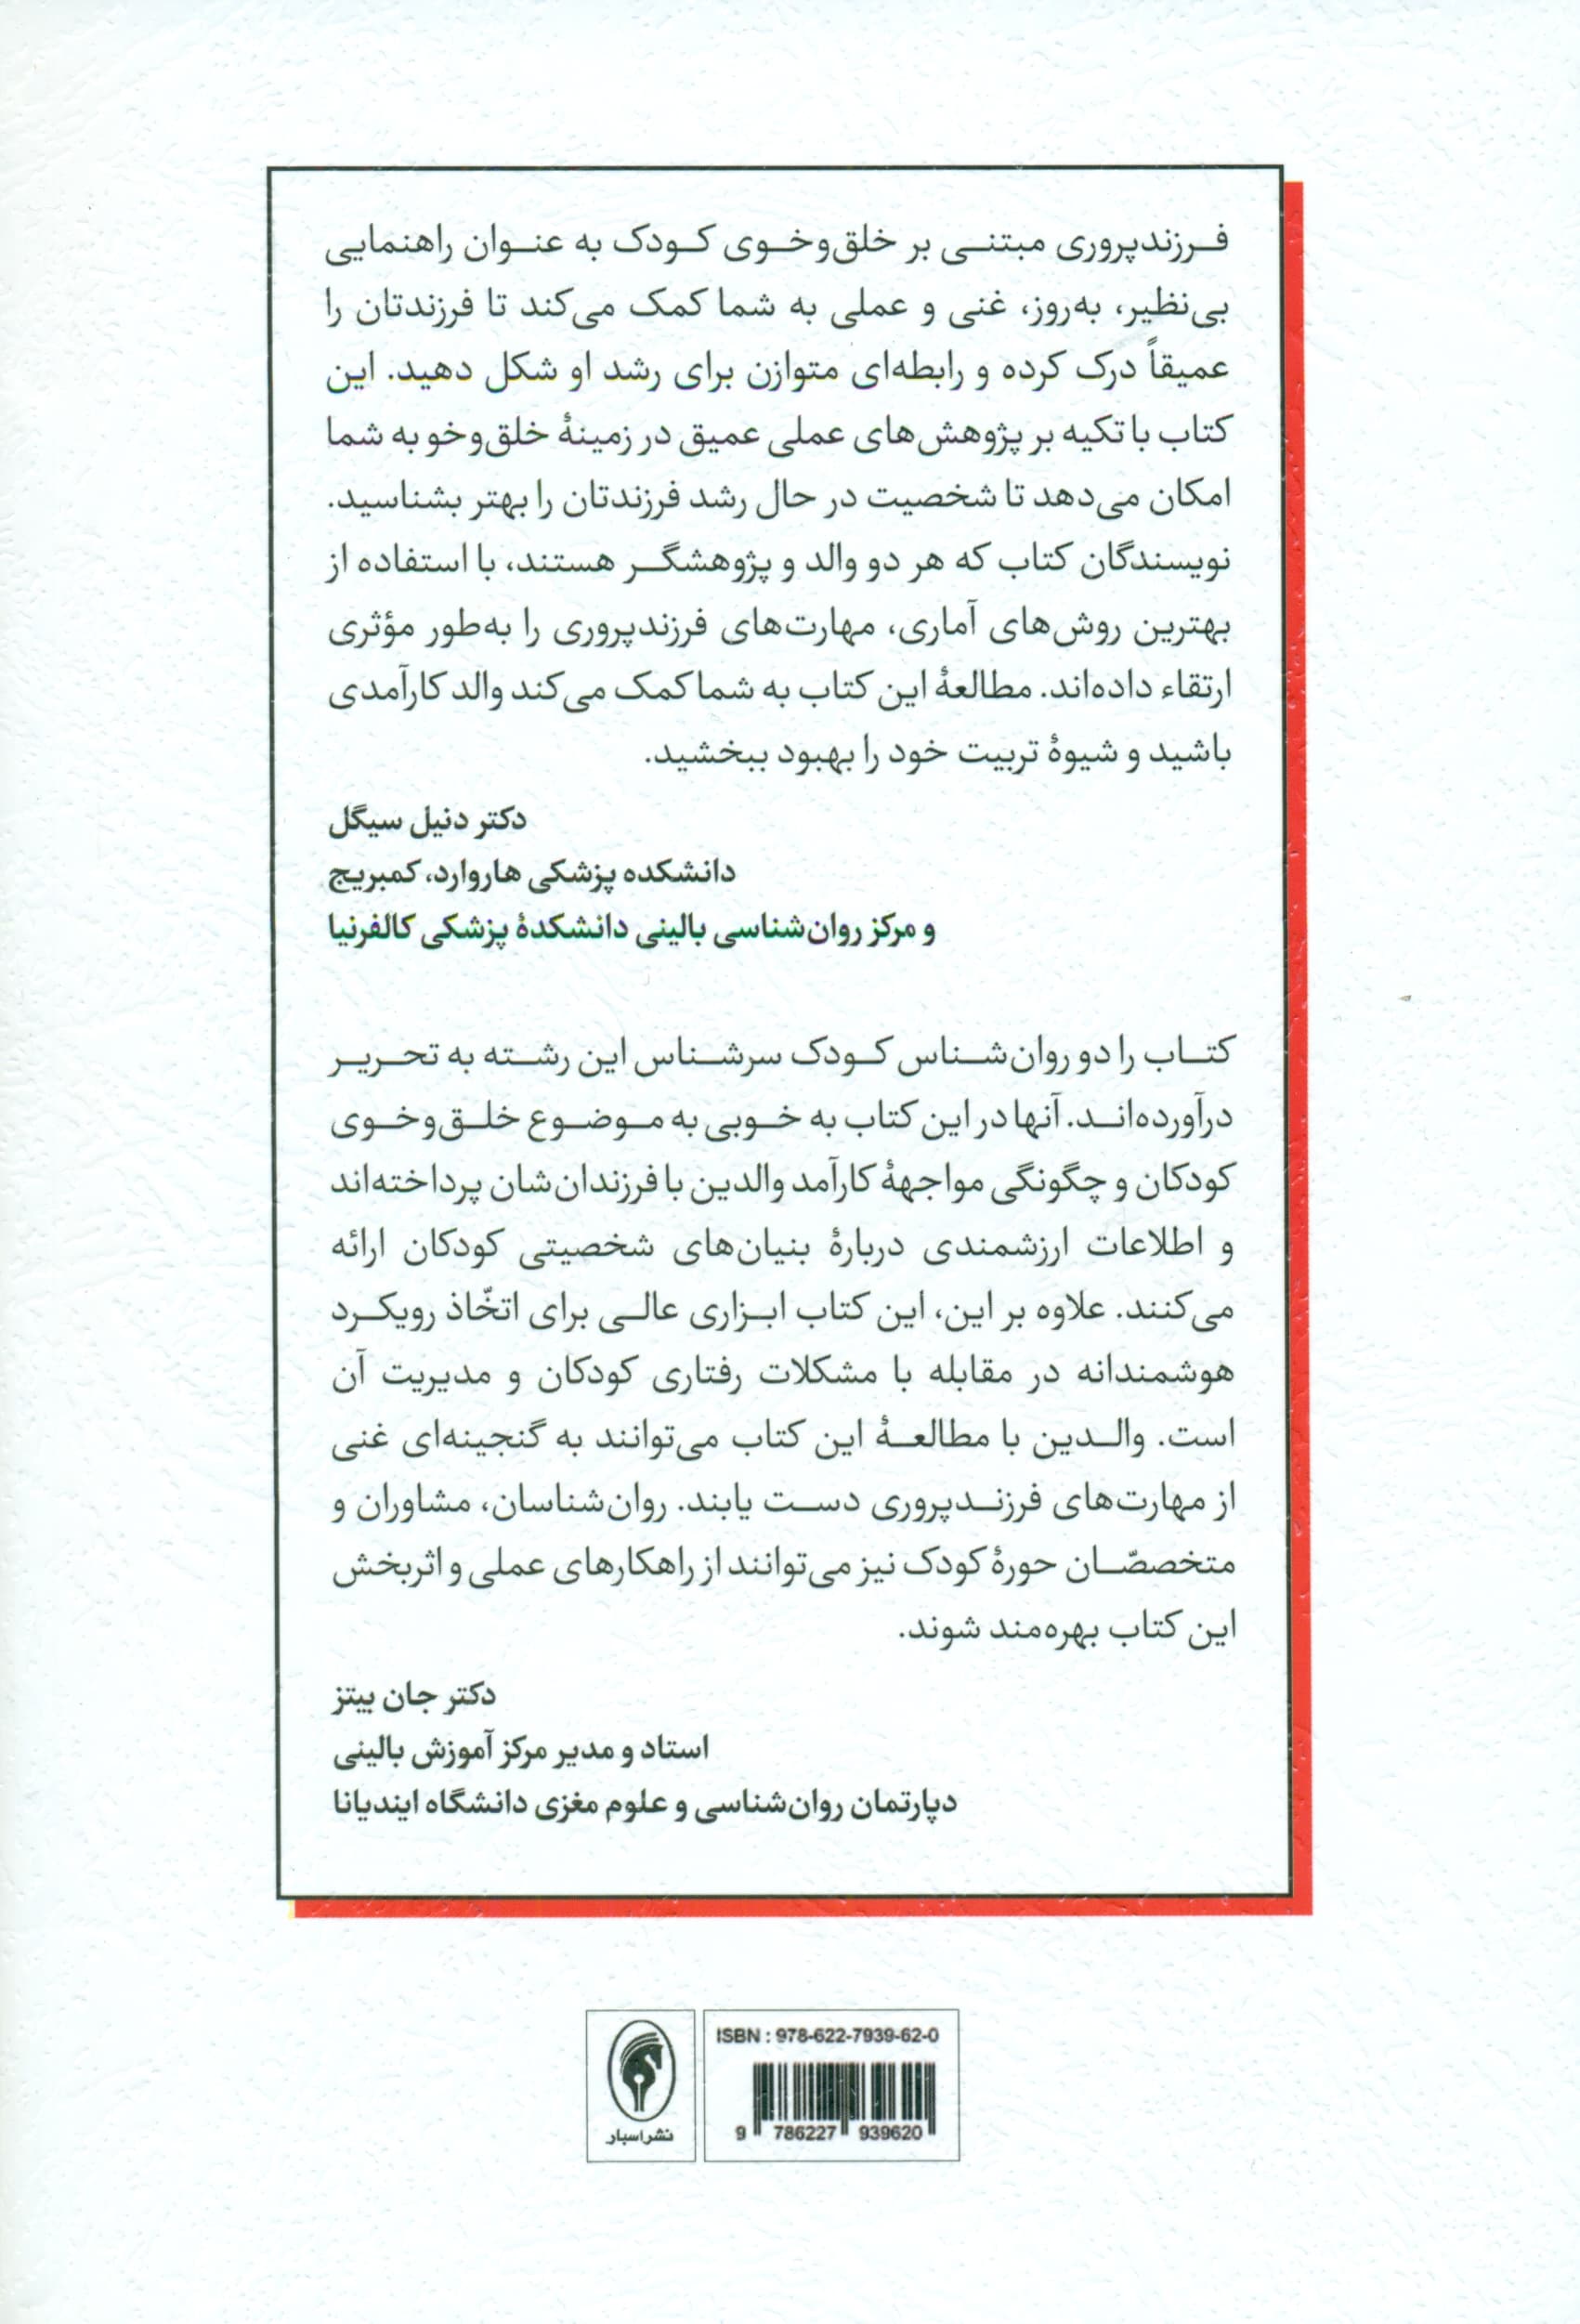 فرزندپروری مبتنی بر خلق‌وخوی کودک به عنوان راهنمایی
بی‌نظیر، به‌روز، غنی و عملی به شما کمک می‌کند تا فرزندتان را
عمیقاً درک کرده و رابطه‌ای متوازن برای رشد او شکل دهید. این
کتاب با تکیه بر پژوهش‌های عملی عمیق در زمینهٔ خلق‌وخو به شما
امکان می‌دهد تا شخصیت در حال رشد فرزندتان را بهتر بشناسید.
نویسندگان کتاب که هر دو والد و پژوهشگر هستند، با استفاده از
بهترین روش‌های آماری، مهارت‌های فرزندپروری را به‌طور مؤثری
ارتقاء داده‌اند. مطالعهٔ این کتاب به شما کمک می‌کند والد کارآمدی
باشید و شیوهٔ تربیت خود را بهبود ببخشید.
دکتر دنیل سیگل
دانشکده پزشکی هاروارد، کمبریج
و مرکز روان‌شناسی بالینی دانشکدهٔ پزشکی کالفرنیا
کتاب را دو روان‌شناس کودک سرشناس این رشته به تحریر
درآورده‌اند. آنها در این کتاب به خوبی به موضوع خلق‌وخوی
کودکان و چگونگی مواجههٔ کارآمد والدین با فرزندان‌شان پرداخته‌اند
و اطلاعات ارزشمندی دربارهٔ بنیان‌های شخصیتی کودکان ارائه
می‌کنند. علاوه بر این، این کتاب ابزاری عالی برای اتخّاذ رویکرد
هوشمندانه در مقابله با مشکلات رفتاری کودکان و مدیریت آن
است. والدین با مطالعهٔ این کتاب می‌توانند به گنجینه‌ای غنی
از مهارت‌های فرزندپروری دست یابند. روان‌شناسان، مشاوران و
متخصصّان حوزهٔ کودک نیز می‌توانند از راهکارهای عملی و اثربخش
این کتاب بهره‌مند شوند.
دکتر جان بیتز
استاد و مدیر مرکز آموزش بالینی
دپارتمان روان‌شناسی و علوم مغزی دانشگاه ایندیانا
ISBN : 978-622-7939-62-0
9 786227 939620
نشر اسبار